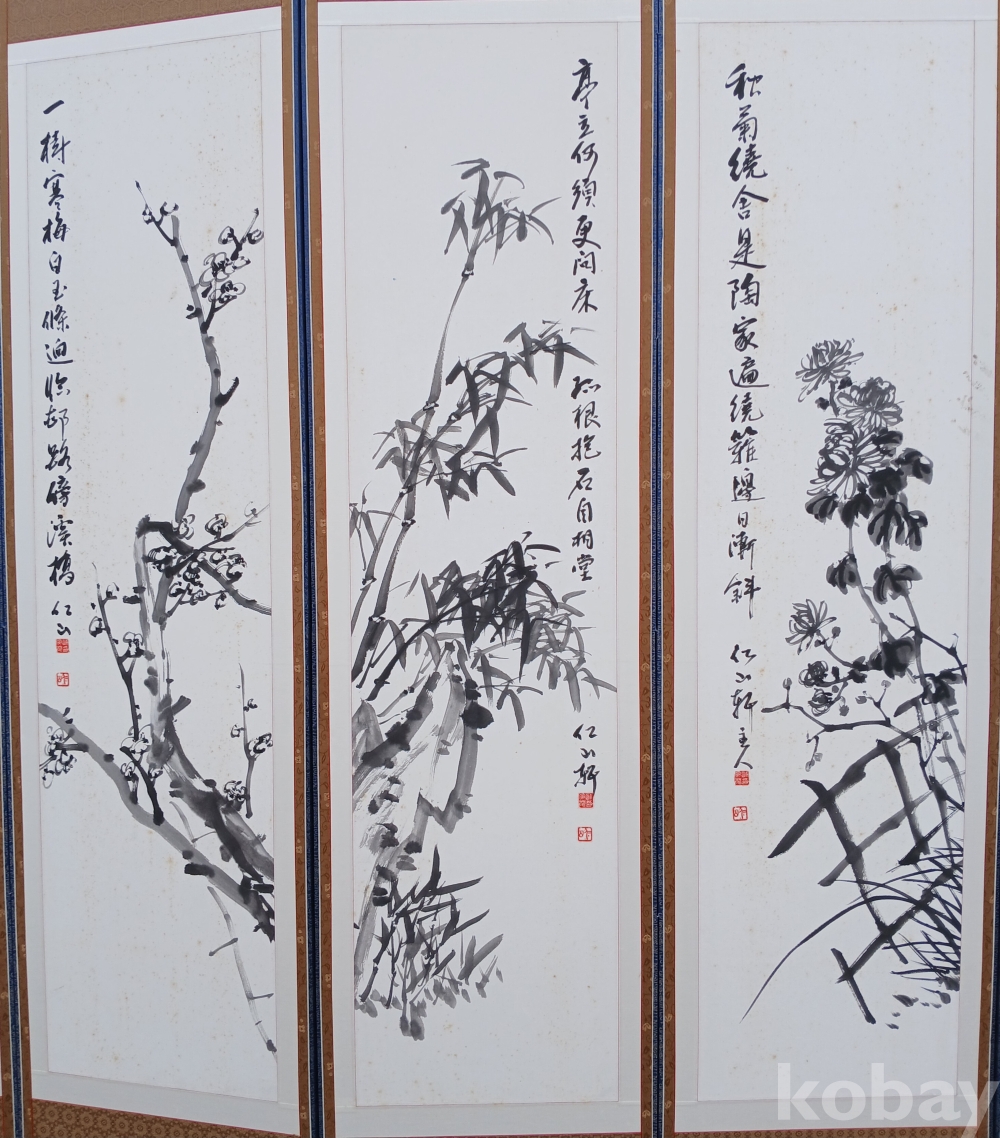 秋菊繞舍是陶家遍繞籬邊日漸斜
仁山軒主人
亭立何須更問床
孤根抱石自相
仁山軒
一樹寒梅白玉條迥臨邨路傍溪橋
仁山
kobay